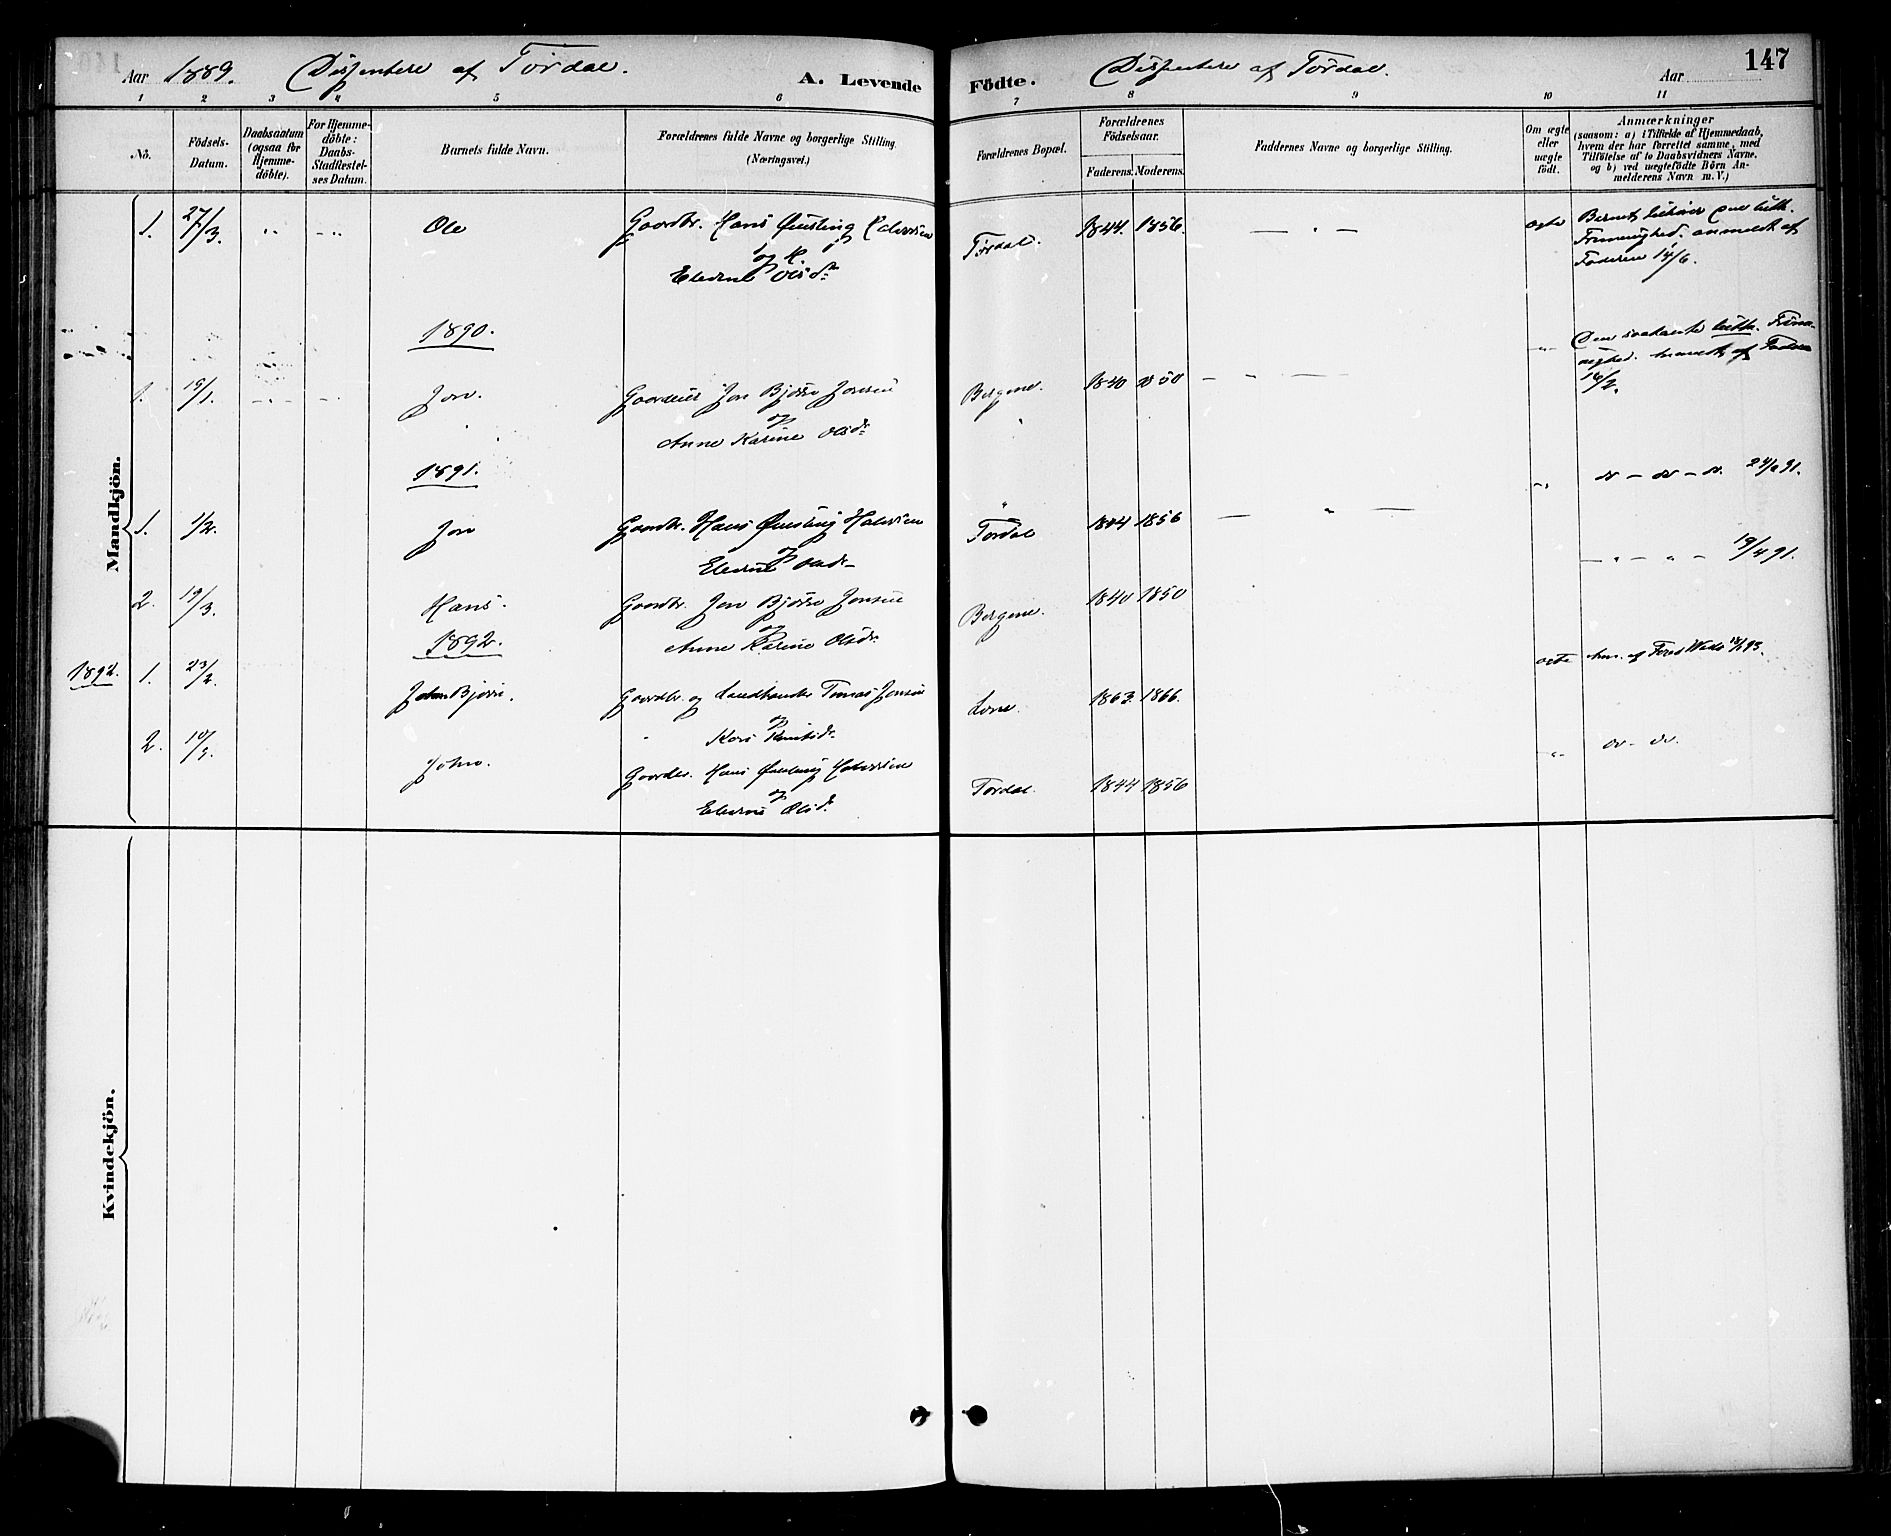 147
Aar 1889. Dissentere af Tördal. A. Levende Födte. Dissentere af Tördal. Aar
1 2 3 4 5 6 7 8 9 10 11
No.
Födsels-
Datum.
Daabsdatum
(ogsaa for
Hjemme-
döbte).
For Hjemme-
döbte:
Daabs-
Stadfæstel-
ses Datum.
Barnets fulde Navn.
Forældrenes fulde Navne og borgerlige Stilling
(Næringsvei.)
Forældrenes Bopæl.
Forældrenes
Födselsaar.
Faderens. Moderens.
Faddernes Navne og borgerlige Stilling.
Om ægte
eller
uægte
födt.
Anmærkninger
(saasom: a) i Tilfælde af Hjemmedaab,
hvem der har forrettet samme, med
Tilföielse af to Daabsvidners Navne,
og b) ved uægtefödte Börn An-
melderens Navn m. V.)
Mandkjön.
1. 27/3. Ole Gaardbr. Hans Halvorsen
og H.
Olsdr.
Tördal. 1844. 1856. ægte
Barnet tilhører Den luth.
Frimenighed. anmeldt af
Faderen 14/6.
1890.
1. 19/1 Jon. Gaardeier Jon Bjørse Jonsen
og
Anne Karine Olsdr.
1840 1850
Den luth. Frime-
nighed. af Faderen
16/2.
1891.
1. 1/2. Jon Gaardbr. Hans Halvorsen
og
Olsdr.
Tördal 1844 1856
do — do — do. 24/2 91.
2. 19/3. Hans. Gaardbr. Jon Bjørse Jonsen
og
Anne Karine Olsdr.
1840 1850
19/4 91.
1892.
1892. 1. 23/2. Gaardbr. og Landhandler Jonsen
og
Kari Knutsdr.
1863. 1866. ægte
2. 10/3. John. Gaardbr. Hans Halvorsen
og
Olsdr.
Tördal. 1844 1856
do — do.
Kvindekjön.